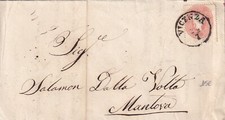 VICENZA
Sig.re
Salamon Dalla Volta
Mantova